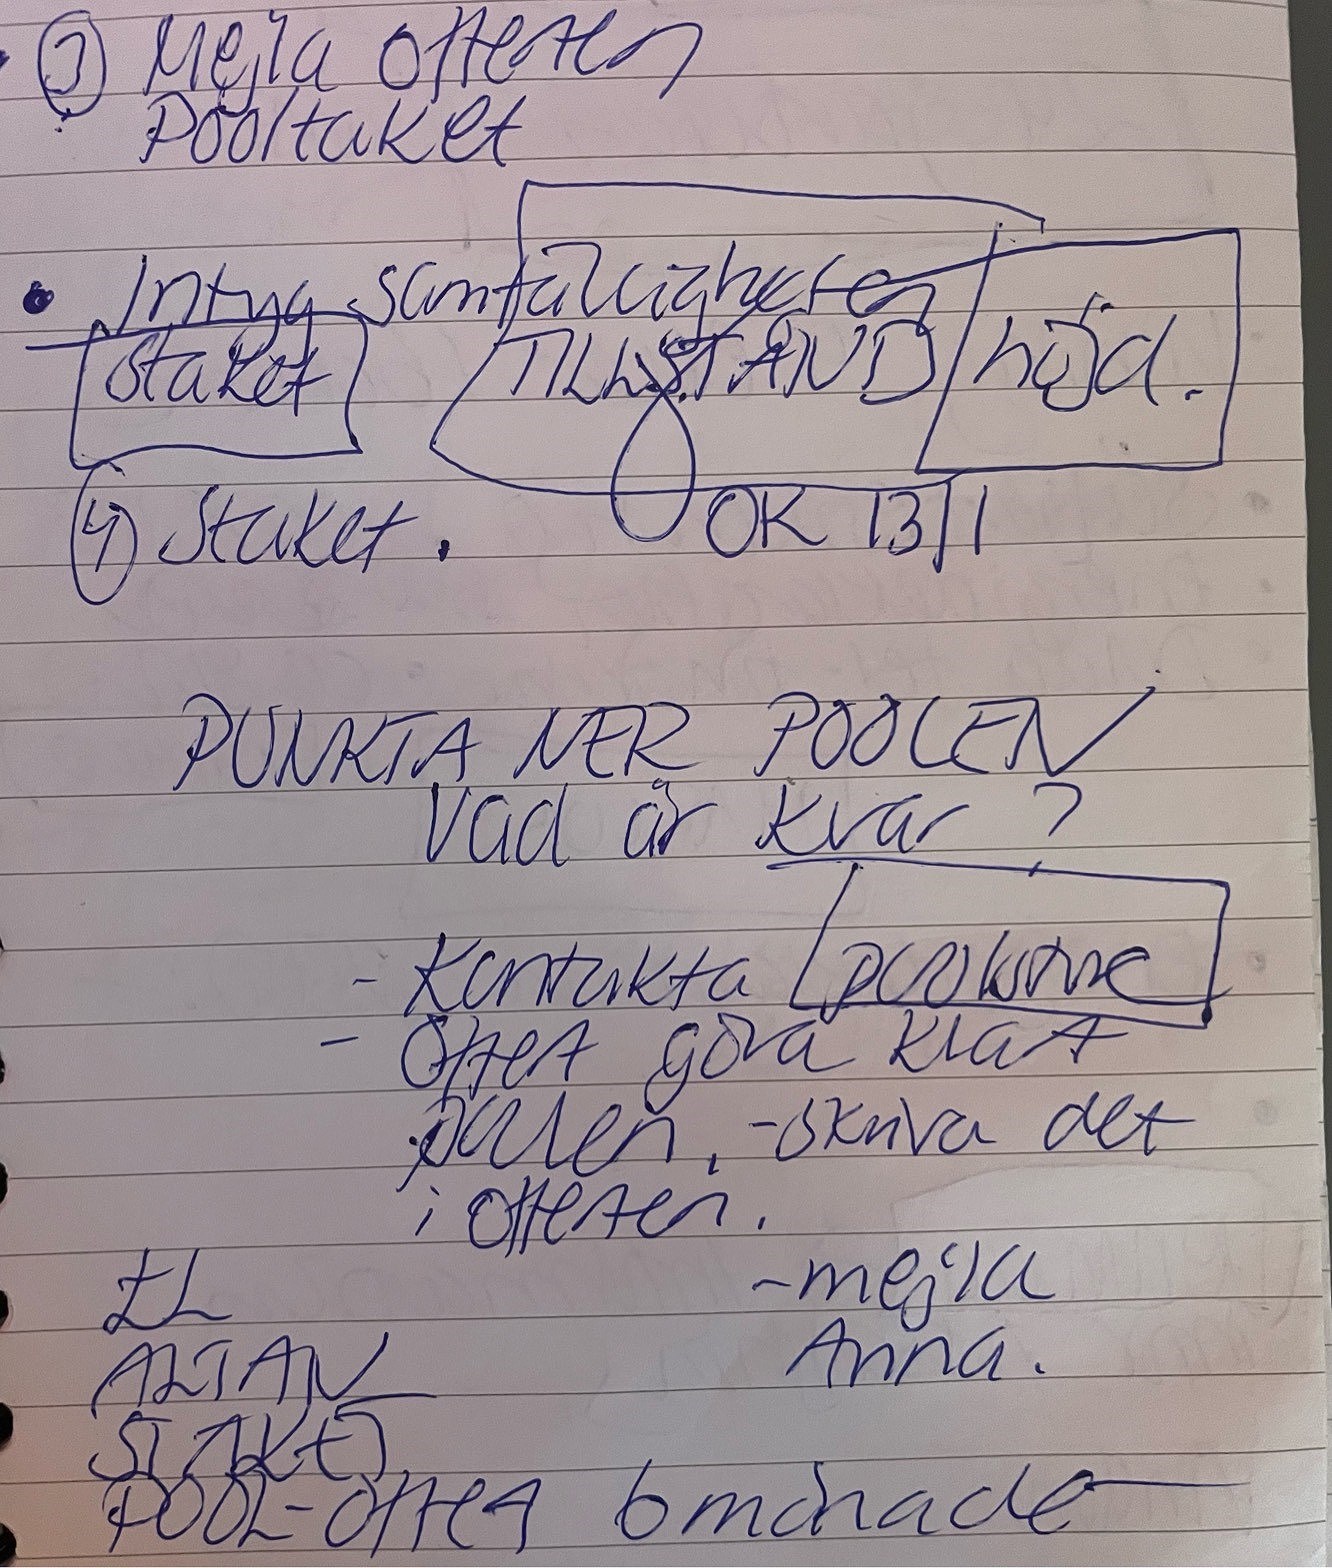 ③ Mejla offerten
Pooltaket
• Intyg samfälligheten
Staket TILLSTÅND höjd.
④ Staket. OK 13/1
PUNKTA NER POOLEN
Vad är kvar?
- Kontakta
- Offert göra klart
poolen, - skriva det
i offerten.
EL - mejla
ALTAN Anna.
STAKET
POOL-offert 6 månader